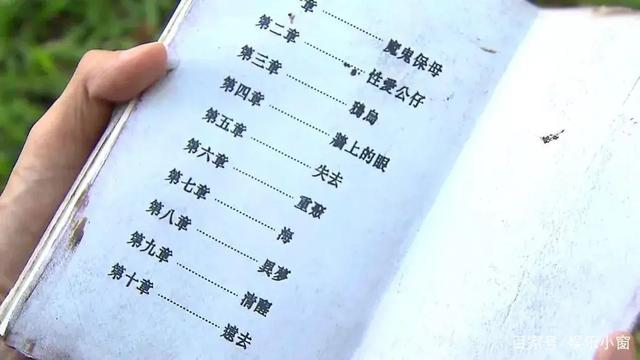 章 ………… 魔鬼保母
第二章 ………… 性愛公仔
第三章 ………… 鴉烏
第四章 ………… 牆上的眼
第五章 ………… 失去
第六章 ………… 重
第七章 ………… 海
第八章 ………… 異夢
第九章 ………… 清醒
第十章 ………… 遠去
百家号/娱乐小窗